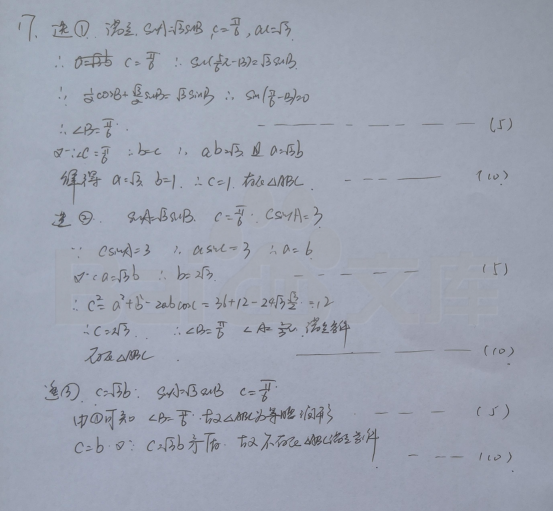 17. 选①. 满足 sinA=√3sinB, C=π/6, ac=√3.
∴ a=√3b C=π/6 ∴ sin(5/6π-B)=√3sinB.
∴ 1/2cosB+√3/2sinB=√3sinB ∴ sin(π/6-B)=0
∴ ∠B=π/6. (5)
又∵∠C=π/6 ∴b=c ∴ ab=√3 且 a=√3b
解得 a=√3 b=1. ∴c=1. 存在△ABC. (10)
选②. sinA=√3sinB. C=π/6. csinA=3
∵ csinA=3 ∴ asinC=3 ∴a=6
又∵a=√3b ∴ b=2√3. (5)
∴ c²=a²+b²-2abcosC=36+12-24√3·√3/2=12
∴C=2√3. ∴∠B=π/6 ∠A=2/3π. 满足条件
存在△ABC (10)
选③. c=√3b. sinA=√3sinB C=π/6.
由①可知 ∠B=π/6. 故△ABC为等腰三角形 (5)
C=b 又∵ C=√3b 矛盾. 故不存在△ABC满足条件 (10)